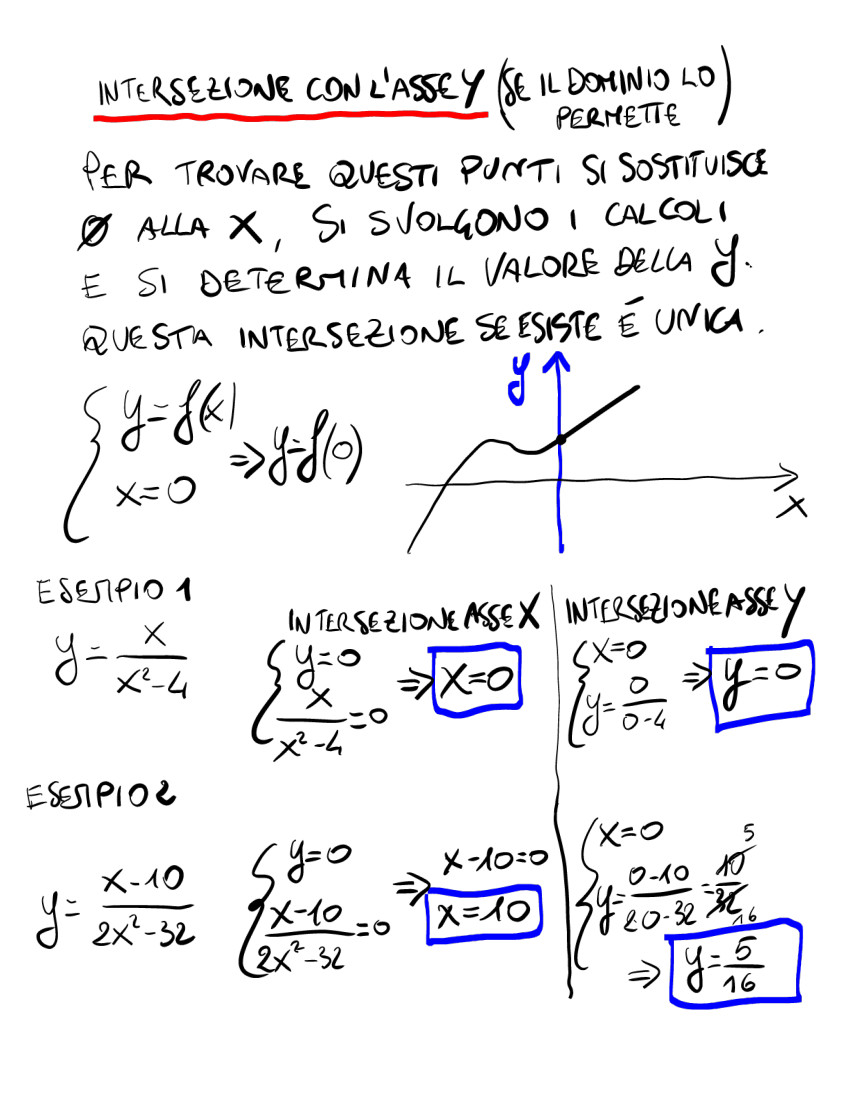 INTERSEZIONE CON L'ASSE Y (SE IL DOMINIO LO PERMETTE)
PER TROVARE QUESTI PUNTI SI SOSTITUISCE
0 ALLA X, SI SVOLGONO I CALCOLI
E SI DETERMINA IL VALORE DELLA y.
QUESTA INTERSEZIONE SE ESISTE É UNICA.
{ y=f(x)
x=0
⇒ y=f(0)
y
x
ESEMPIO 1
y = x / (x²-4)
INTERSEZIONE ASSE X
{ y=0
x / (x²-4) = 0
⇒ x=0
INTERSEZIONE ASSE Y
{ x=0
y = 0 / (0-4)
⇒ y=0
ESEMPIO 2
y = (x-10) / (2x²-32)
{ y=0
(x-10) / (2x²-32) = 0
⇒ x-10=0
x=10
{ x=0
y = (0-10) / (2·0-32) = 10 / 32
5
16
⇒ y = 5 / 16